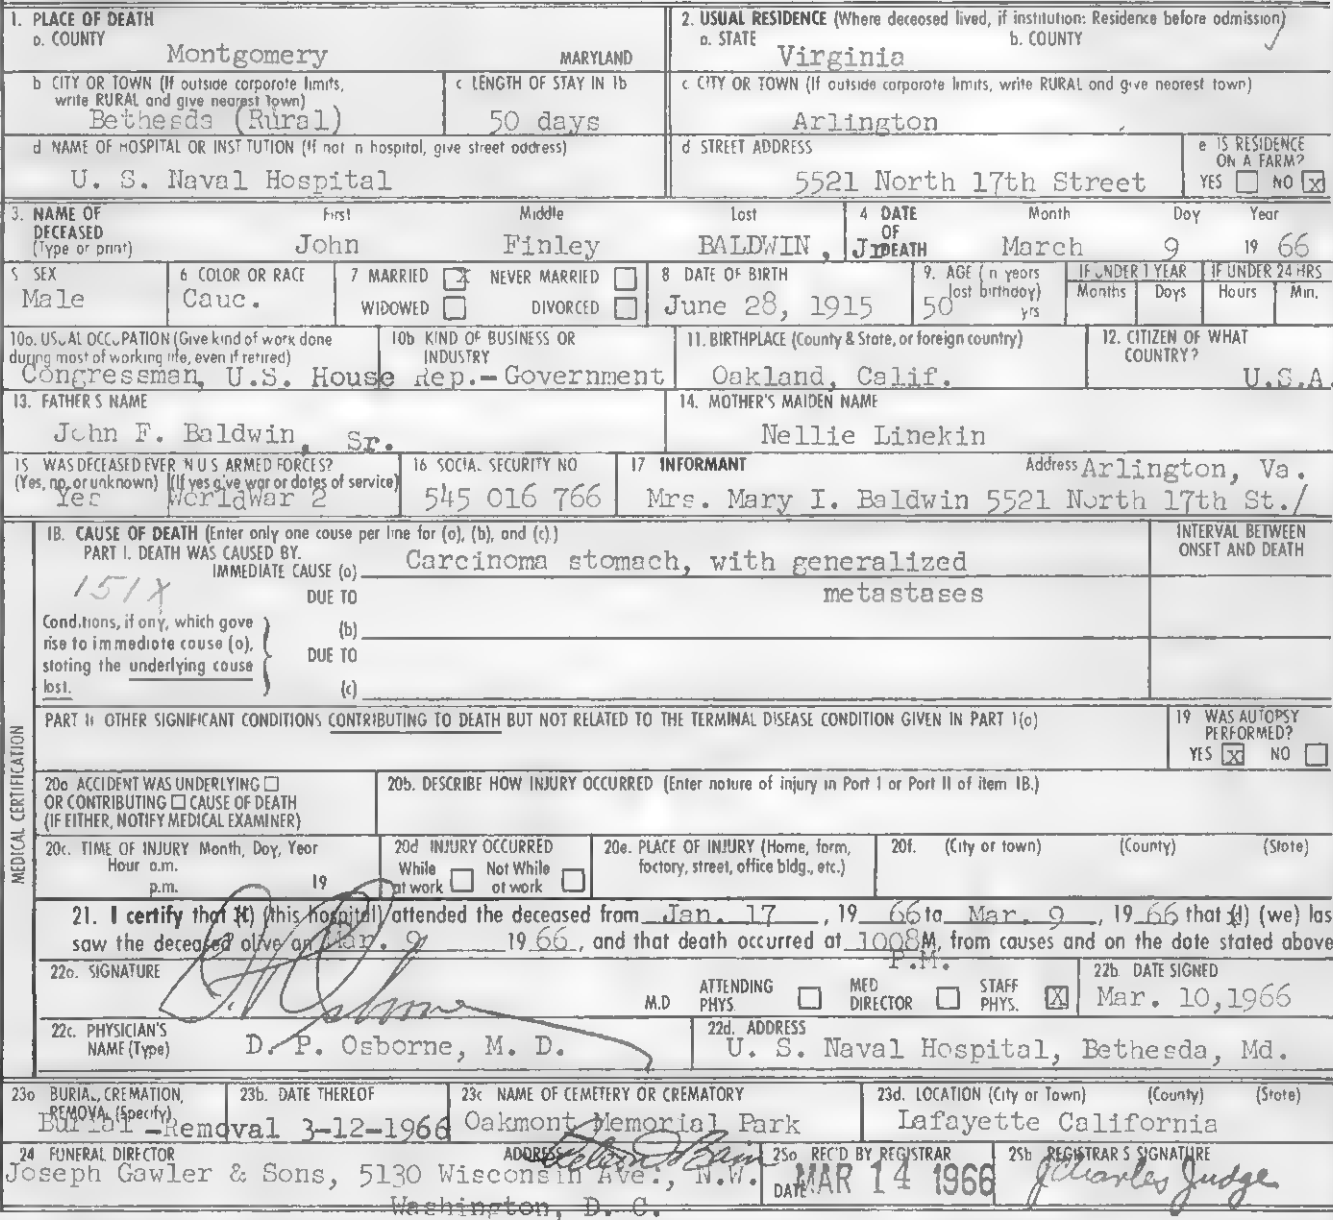 1. PLACE OF DEATH
a. COUNTY
Montgomery MARYLAND
2. USUAL RESIDENCE (Where deceased lived, if institution: Residence before admission)
a. STATE b. COUNTY
Virginia
b CITY OR TOWN (If outside corporate limits, write RURAL and give nearest town)
Bethesda (Rural)
c LENGTH OF STAY IN 1b
50 days
c. CITY OR TOWN (If outside corporate limits, write RURAL and give nearest town)
Arlington
d NAME OF HOSPITAL OR INSTITUTION (If not in hospital, give street address)
U. S. Naval Hospital
d STREET ADDRESS
5521 North 17th Street
e IS RESIDENCE ON A FARM?
YES NO X
3. NAME OF DECEASED (Type or print)
First Middle Last
John Finley BALDWIN, Jr
4 DATE OF DEATH
Month Day Year
March 9 19 66
5 SEX
Male
6 COLOR OR RACE
Cauc.
7 MARRIED X NEVER MARRIED
WIDOWED DIVORCED
8 DATE OF BIRTH
June 28, 1915
9. AGE (In years last birthday)
50 yrs
IF UNDER 1 YEAR
Months Days
IF UNDER 24 HRS
Hours Min.
10a. USUAL OCCUPATION (Give kind of work done during most of working life, even if retired)
10b KIND OF BUSINESS OR INDUSTRY
Congressman, U.S. House Rep.-Government
11. BIRTHPLACE (County & State, or foreign country)
Oakland, Calif.
12. CITIZEN OF WHAT COUNTRY?
U.S.A.
13. FATHER'S NAME
John F. Baldwin, Sr.
14. MOTHER'S MAIDEN NAME
Nellie Linekin
15 WAS DECEASED EVER IN U S ARMED FORCES?
(Yes, no, or unknown) (If yes give war or dates of service)
Yes World War 2
16 SOCIAL SECURITY NO
545 016 766
17 INFORMANT Address Arlington, Va.
Mrs. Mary I. Baldwin 5521 North 17th St./
MEDICAL CERTIFICATION
18. CAUSE OF DEATH (Enter only one cause per line for (a), (b), and (c).)
PART I. DEATH WAS CAUSED BY.
IMMEDIATE CAUSE (a) Carcinoma stomach, with generalized
151X DUE TO metastases
INTERVAL BETWEEN ONSET AND DEATH
Conditions, if any, which gave rise to immediate cause (a), stating the underlying cause last.
(b)
DUE TO
(c)
PART II OTHER SIGNIFICANT CONDITIONS CONTRIBUTING TO DEATH BUT NOT RELATED TO THE TERMINAL DISEASE CONDITION GIVEN IN PART 1(a)
19 WAS AUTOPSY PERFORMED?
YES X NO
20a ACCIDENT WAS UNDERLYING
OR CONTRIBUTING CAUSE OF DEATH
(IF EITHER, NOTIFY MEDICAL EXAMINER)
20b. DESCRIBE HOW INJURY OCCURRED (Enter nature of injury in Part I or Part II of item 18.)
20c. TIME OF INJURY Month, Day, Year
Hour a.m.
p.m. 19
20d INJURY OCCURRED
While at work Not While at work
20e. PLACE OF INJURY (Home, farm, factory, street, office bldg., etc.)
20f. (City or town) (County) (State)
21. I certify that (I) (this hospital) attended the deceased from Jan. 17, 19 66 to Mar. 9, 19 66 that (I) (we) las
saw the deceased alive on Mar. 9 19 66, and that death occurred at 1008 M, from causes and on the date stated above
P.M.
22a. SIGNATURE
D P Osborne M.D
ATTENDING PHYS MED DIRECTOR STAFF PHYS. X
22b. DATE SIGNED
Mar. 10,1966
22c. PHYSICIAN'S NAME (Type)
D. P. Osborne, M. D.
22d. ADDRESS
U. S. Naval Hospital, Bethesda, Md.
23a BURIAL, CREMATION, REMOVAL (Specify)
Burial-Removal
23b. DATE THEREOF
3-12-1966
23c NAME OF CEMETERY OR CREMATORY
Oakmont Memorial Park
23d. LOCATION (City or Town) (County) (State)
Lafayette California
24 FUNERAL DIRECTOR ADDRESS
Joseph Gawler & Sons, 5130 Wisconsin Ave., N.W.
Washington, D. C.
25a REC'D BY REGISTRAR
DATE MAR 14 1966
25b REGISTRAR'S SIGNATURE
J Charles Judge